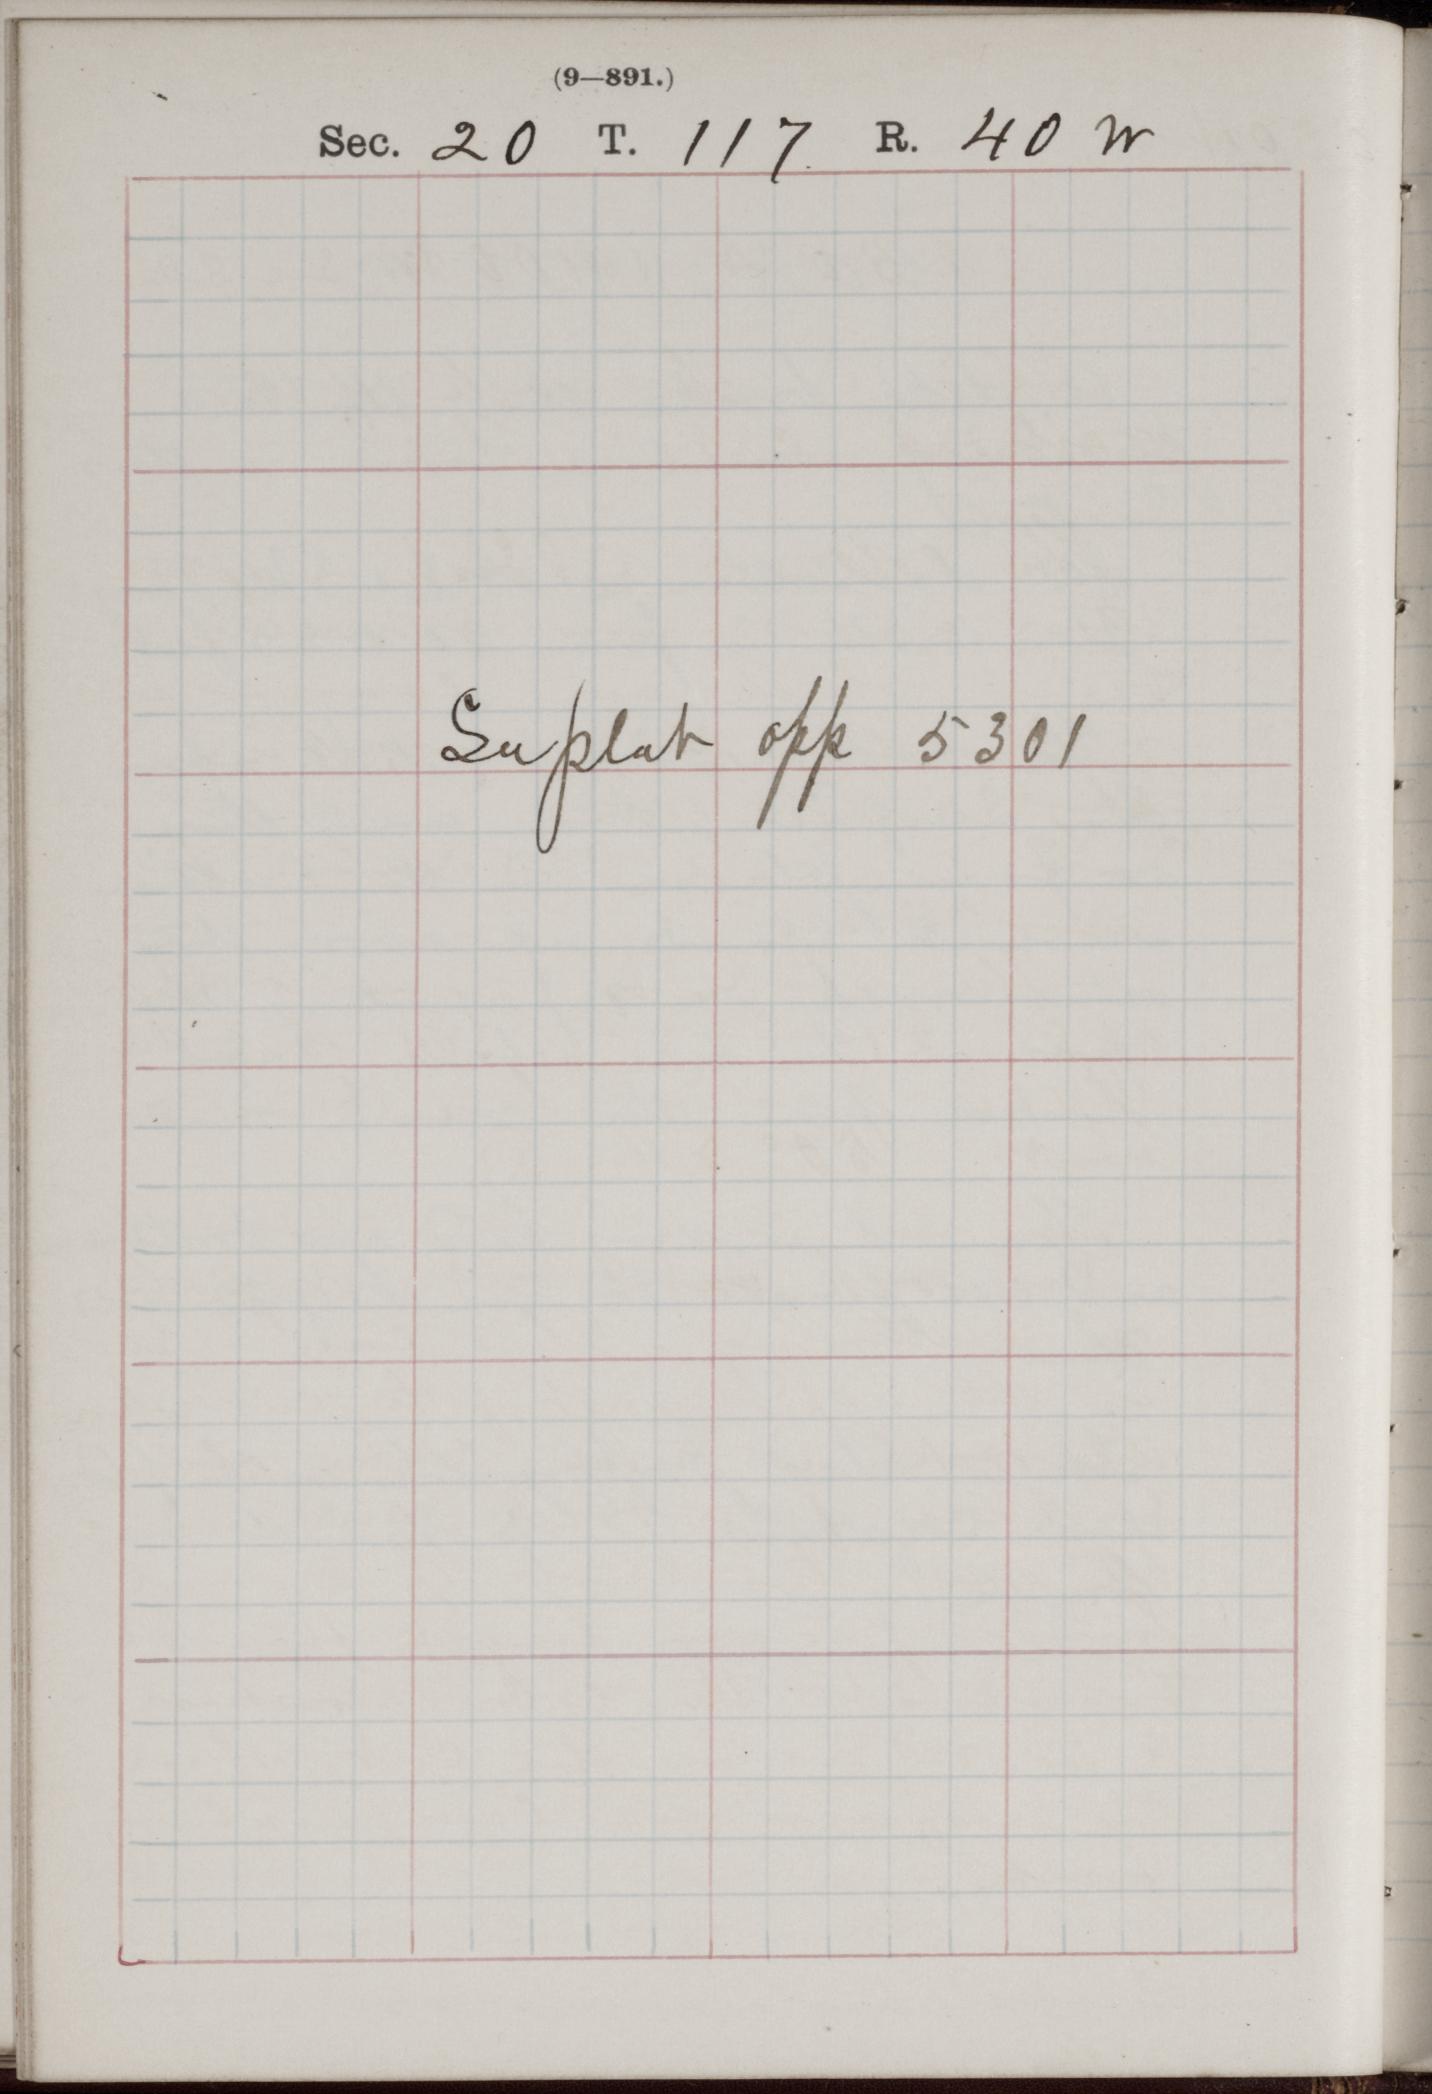 (9—891.)
Sec. 20 T. 117 R. 40 W
See plat opp 5301